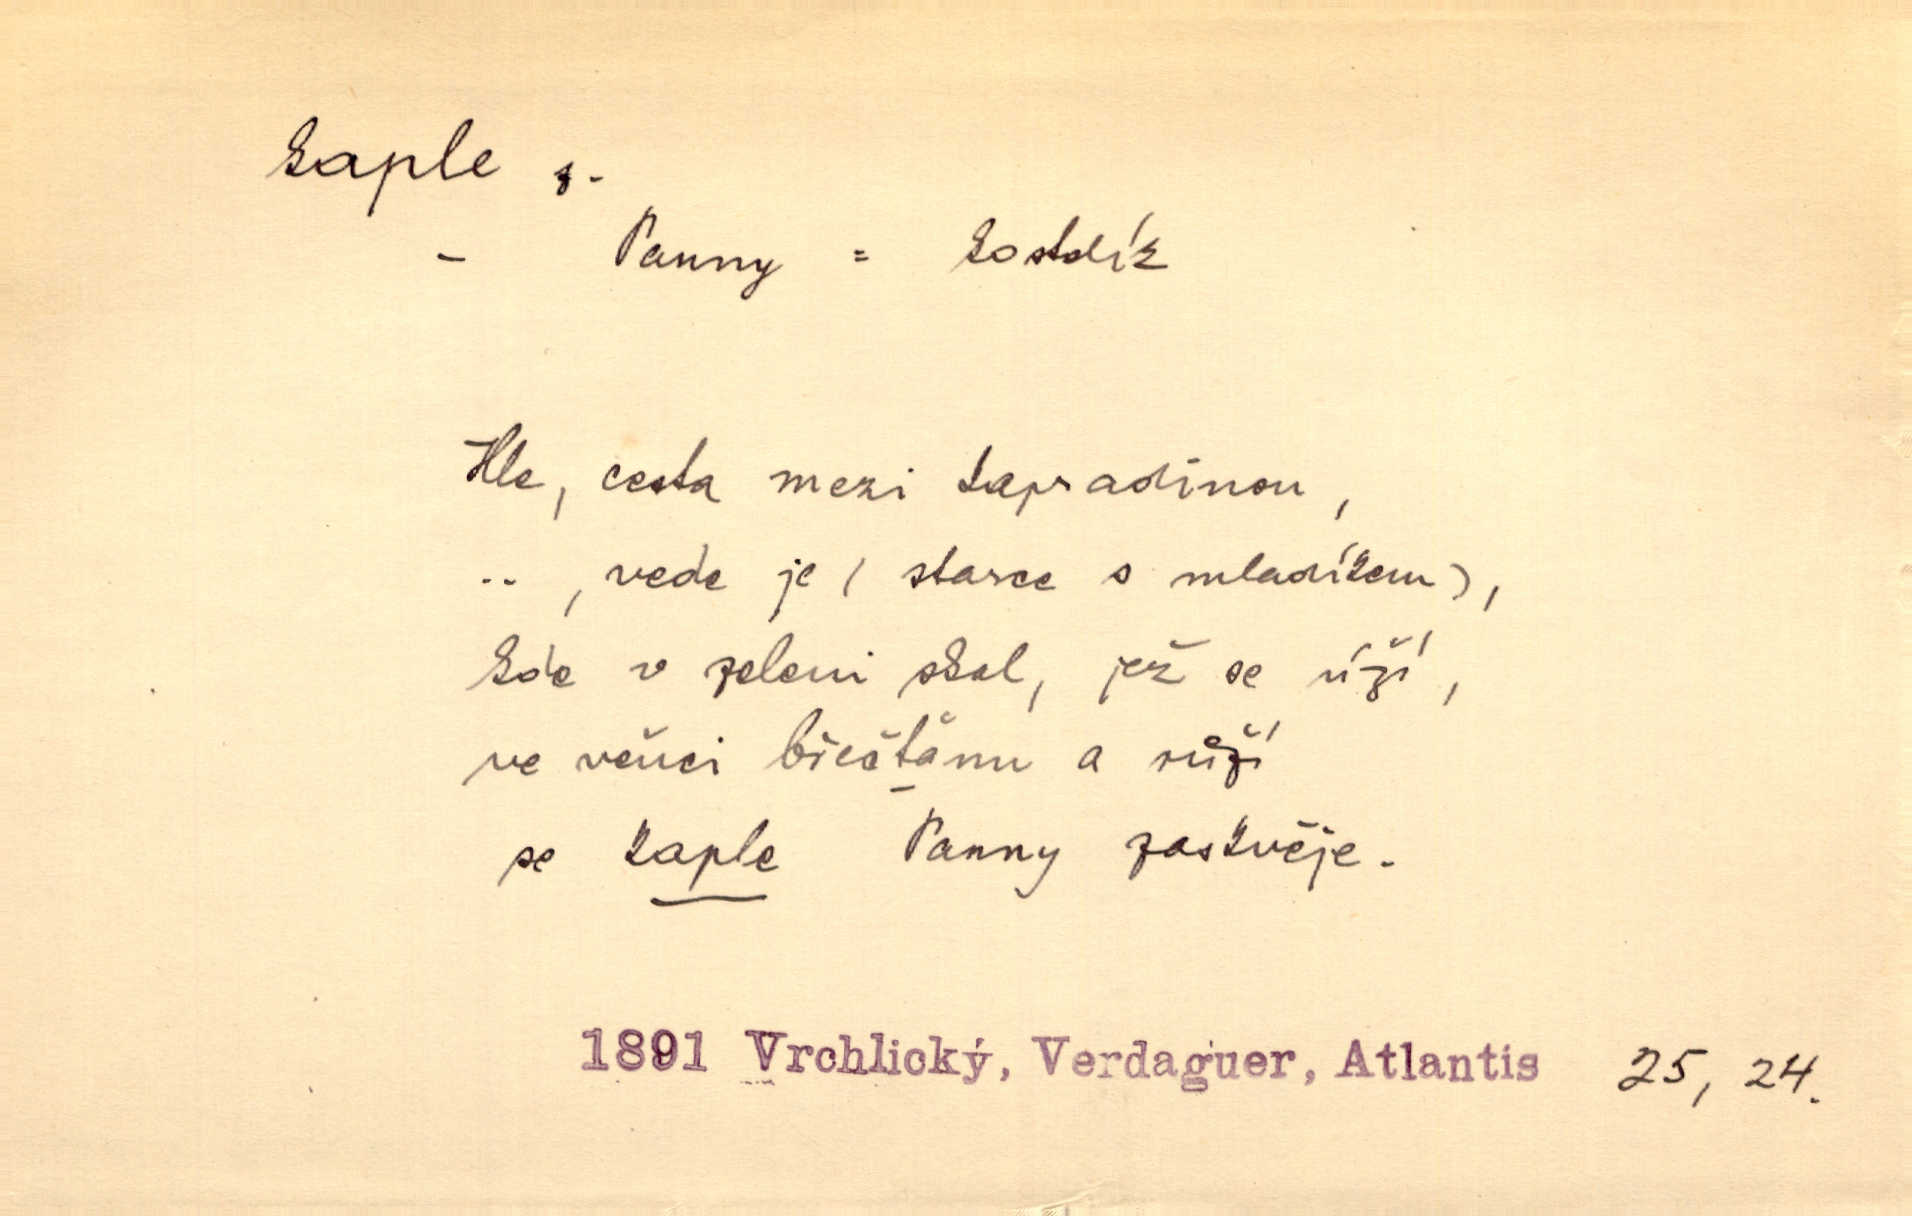 kaple ž.
- Panny = kostelík
Hle, cesta mezi kapradinou,
.. , vede je ( starce s mladíkem),
kde v zeleni skal, jež se úží,
ve věnci břečťanu a růží
se kaple Panny zaskvěje.
1891 Vrchlický, Verdaguer, Atlantis 25, 24.